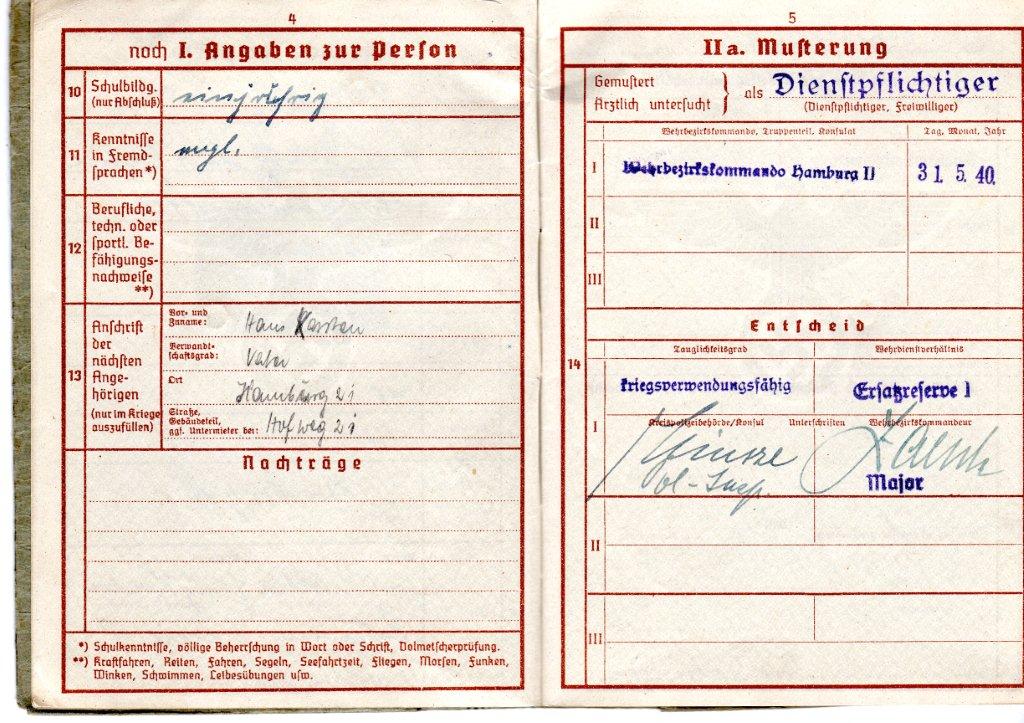 4
noch I. Angaben zur Person
10
Schulbildg.
(nur Abschluß)
einjährig
11
Kenntnisse
in Fremd-
sprachen *)
engl.
12
Berufliche,
techn. oder
sportl. Be-
fähigungs-
nachweise
**)
13
Anschrift
der
nächsten
Ange-
hörigen
(nur im Kriege
auszufüllen)
Vor- und
Zuname:
Hans Karsten
Verwandt-
schaftsgrad:
Vater
Ort
Hamburg 21
Straße,
Gebäudeteil,
ggf. Untermieter bei:
Hofweg 21
Nachträge
*) Schulkenntnisse, völlige Beherrschung in Wort oder Schrift, Dolmetscherprüfung.
**) Kraftfahren, Reiten, Fahren, Segeln, Seefahrtzeit, Fliegen, Morsen, Funken,
Winken, Schwimmen, Leibesübungen usw.
5
IIa. Musterung
Gemustert
Ärztlich untersucht
als Dienstpflichtiger
(Dienstpflichtiger, Freiwilliger)
Wehrbezirkskommando, Truppenteil, Konsulat
Tag, Monat, Jahr
I
Wehrbezirkskommando Hamburg II
31. 5. 40.
II
III
Entscheid
14
Tauglichkeitsgrad
Wehrdienstverhältnis
I
kriegsverwendungsfähig
Ersatzreserve I
Kreispolizeibehörde/Konsul
Unterschriften
Wehrbezirkskommandeur
Major
II
III